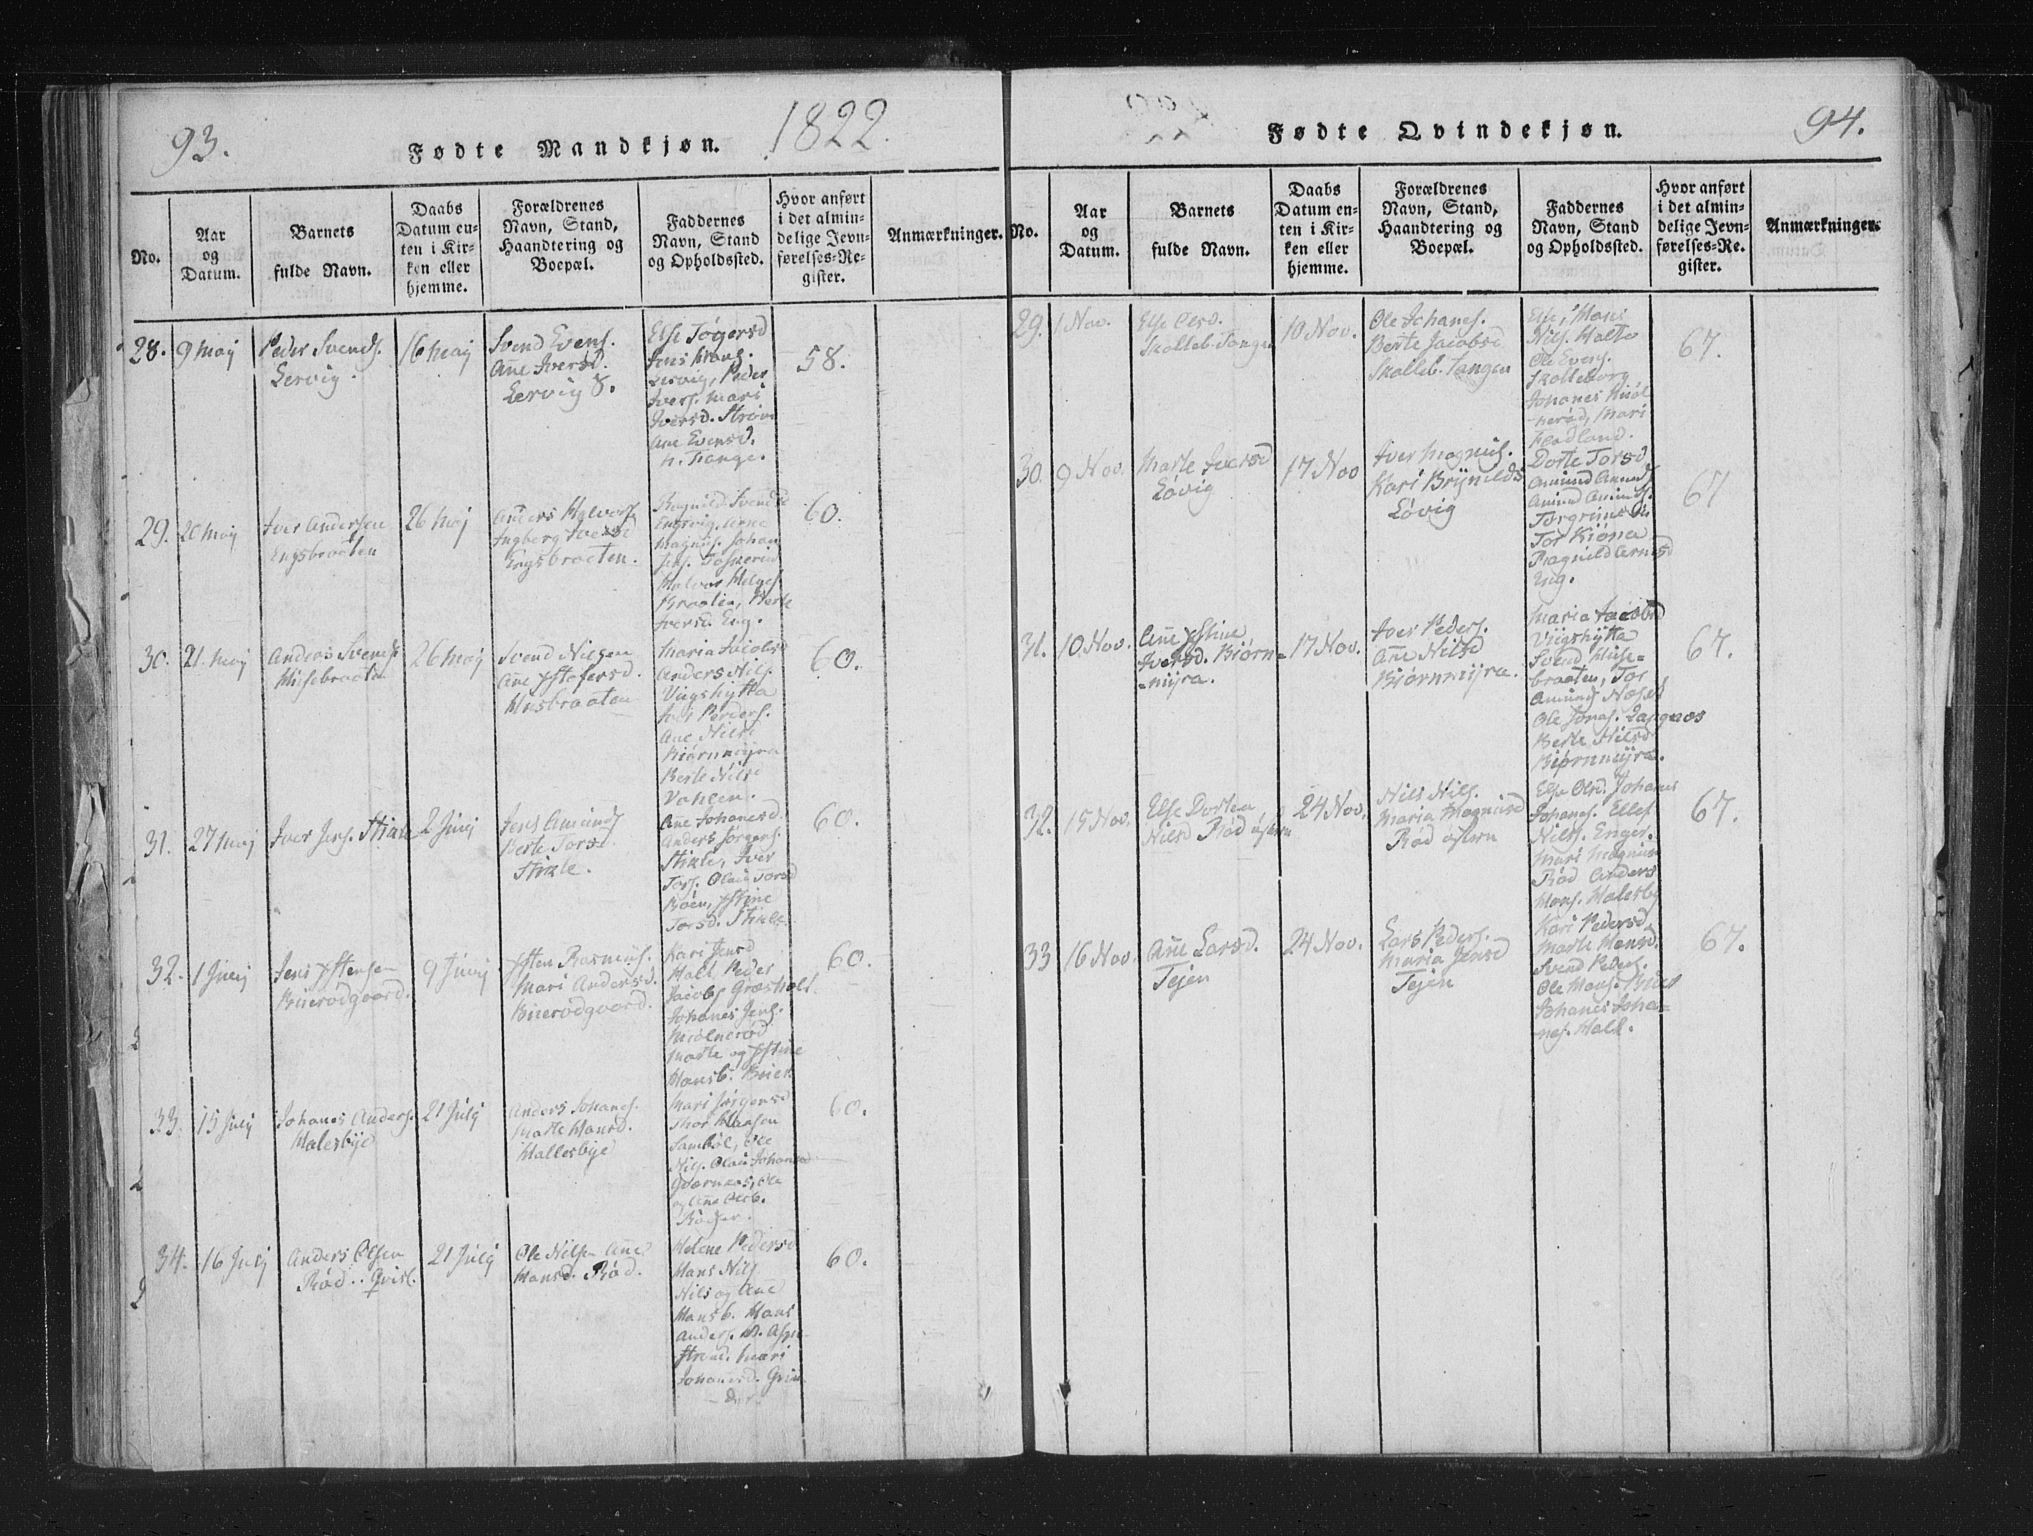 93.
Fødte Mandkjøn.
1822.
No.
Aar
og
Datum.
Barnets
fulde Navn.
Daabs
Datum en-
ten i Kir-
ken eller
hjemme.
Forældrenes
Navn, Stand,
Haandtering og
Boepæl.
Faddernes
Navn, Stand
og Opholdssted.
Hvor anført
i det almin-
delige Jevn-
førelses-Re-
gister.
Anmærkninger.
28.
9 Maj
Peder Svends.
Lervig.
16 Maj
Svend Evens.
Ane Iversd.
Lervig S.
Else Tøgersd
Jens
Lervig, Peder
Ivers. Mari
Iversd. Strøm
Ane Evensd.
n. Tange.
58.
29.
20 Maj
Iver Andersen
Engsbraaten
26 Maj
Anders Halvors
Ingberg Iversd
Engsbraaten.
Ragnild Svends
Engsvig, Arne
Magnus. Johan
Jens.
Halvor Helges.
Braaten, Berte
Iversd. Eng.
60.
30.
21. Maj
Anders Svends
Husebraaten
26 Maj
Svend Nilsen
Ane Istofersd.
Husbraaten
Maria Jacobsd
Anders Nils.
Viigshytta
Iver Peders.
Ane Nilsd
Biørnmyra
Berte Nilsd
60.
31.
27 Maj
Iver Jens. Stikle
2 Junj
Jens Amunds
Berte Torsd
Stikle.
Ane Johanesd.
Anders Jørgens.
Stikle, Iver
Tors. Olau Torsd
Røen, Istine
Torsd. Stikle.
60.
32.
1 Junj
Jens Istensen
Buerødgaard.
9 Junj
Isten Rasmus.
Mari Andersd.
Buerødgaard.
Kari Jensd
Hall, Peder
Jacobs Græsholt.
Johanes Jens.
Miølnerød
Marte og Istine
Hansb. Buer
60.
33.
15 Julj
Johanes Anders.
Halesbye
21 Julj
Anders Johanes.
Marte Hansd.
Hallesbye
Mari Jørgensd
Thor Hansen
Sambøl, Ole
Nils. Olau Johansd
Ole
og Ane Oleb.
60.
34.
16 Julj
Anders Olsen
Rød
21 Julj
Ole Nilsen Ane
Hansd. Rød.
Helene Pedersd
Hans Nils
Nils og Ane
Hansb. Hans
Anders.
Mari
Johanesd. Grin
der
60.
Fødte Qvindekjøn.
94.
No.
Aar
og
Datum.
Barnets
fulde Navn.
Daabs
Datum en-
ten i Kir-
ken eller
hjemme.
Forældrenes
Navn, Stand,
Haandtering og
Boepæl.
Faddernes
Navn, Stand
og Opholdssted.
Hvor anført
i det almin-
delige Jevn-
førelses-Re-
gister.
Anmærkninger.
29.
1 Nov.
Else Olsd.
Skolleb. Tangen
10 Nov.
Ole Johanes.
Berte Jacobsd
Skolleb. Tangen
Else, Hans
Nils. Holte
Ole Evens.
Skolleborg
Johanes Miøl
nerød, Mari
Fladland.
67.
30.
9 Nov.
Marte Iversd
Løvig
17 Nov
Iver Magnus.
Kari Brynilds
Løvig
Dorte Torsd
Amund Amunds
Amund Amunds.
Torgrims
Tor Kiøna
Ragnild Arnesd
Eng.
67
31.
10 Nov.
Ane Istine
Iversd. Biørn-
-myra.
17 Nov.
Iver Peders.
Ane Nilsd
Biørnmyra.
Maria Jacobsd
Viigshytta
Svend Huse-
braaten, Tor
Amunds Næset
Ole Jonas. Langnæs
Berte Nilsd
Biørnmyra.
67.
32.
15 Nov.
Else Dortea
Nilsd Rød østern
24 Nov.
Nils Nils.
Maria Magnusd
Rød østern
Else Olsd. Johanes
Johanes. Ellef
Nils. Enger.
Mari Magnusd
Rød Anders
Hans. Halesby
67.
33
16 Nov.
Ane Larsd.
Tejen
24 Nov.
Lars Peders.
Maria Jensd
Tejen
Kari Pedersd.
Marte Hansd.
Svend Peders.
Ole Hans. Buer
Johanes Johan-
nes. Hall.
67.